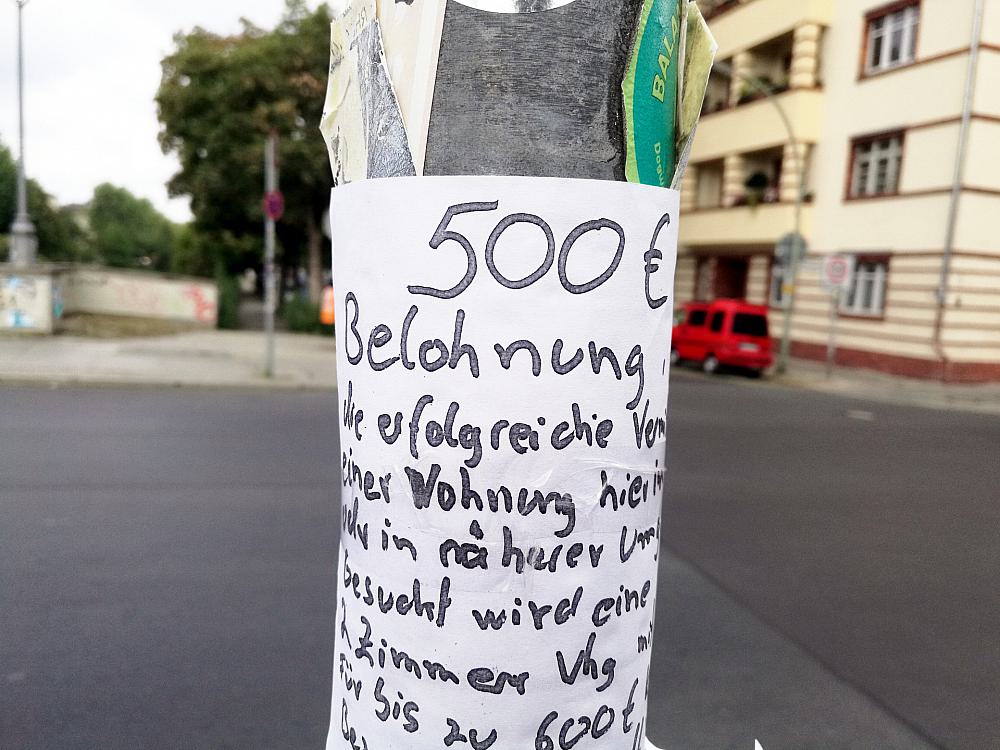 BAL
500 €
Belohnung,
die erfolgreiche Verm
einer Wohnung hier in
oder in näherer Umg
Gesucht wird eine
2 Zimmerr Whg mit
für bis zu 600 €
Be